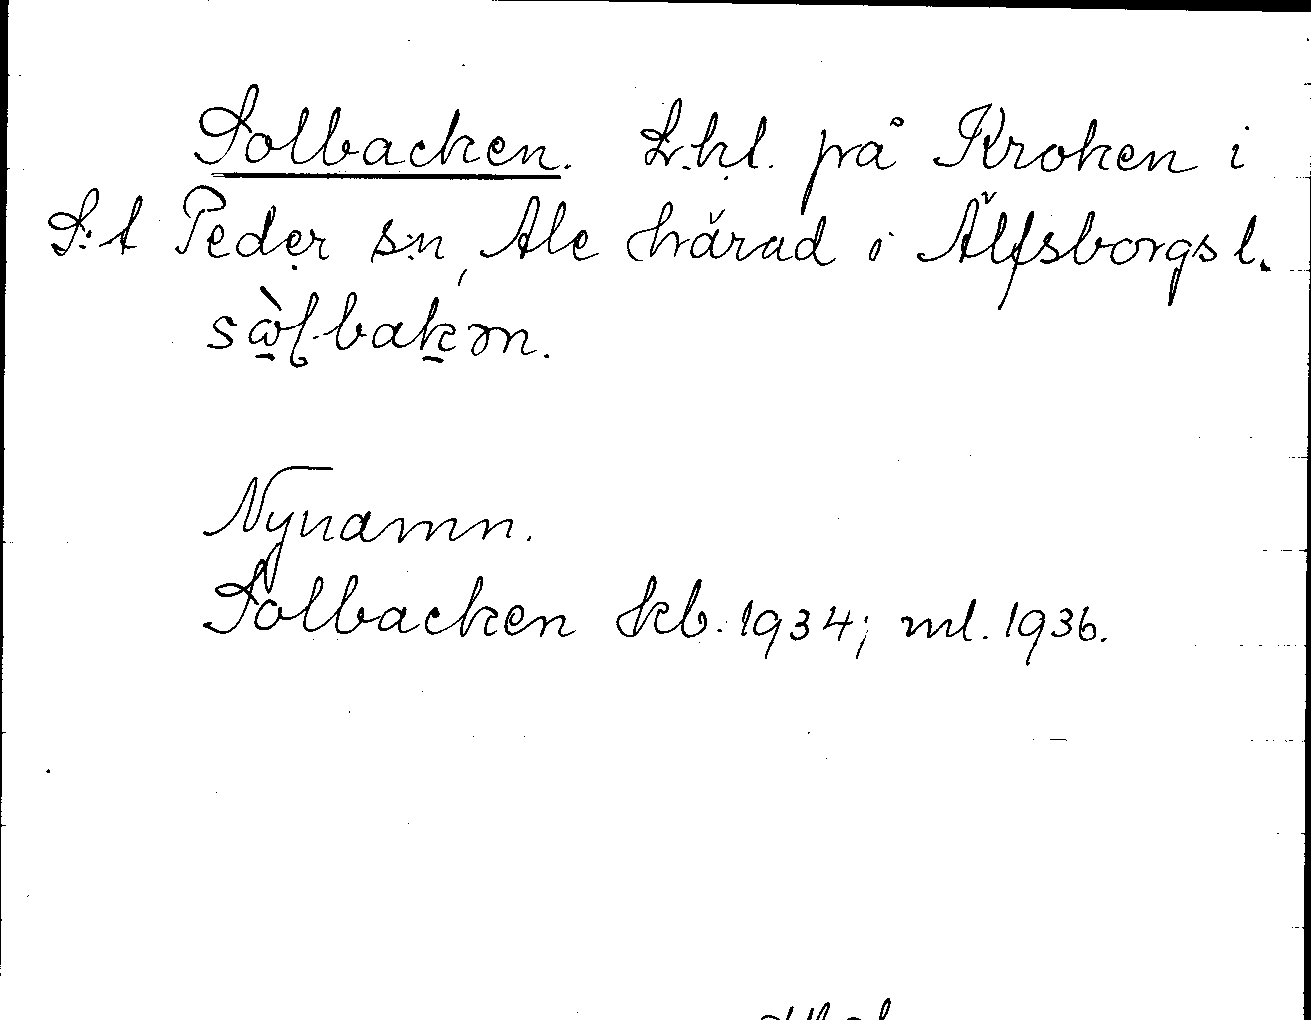 Solbacken. L.h.l. på Kroken i
S:t Peder s:n, Ale härad i Älfsborgs l.
Nynamn.
Solbacken kb. 1934; ml. 1936.